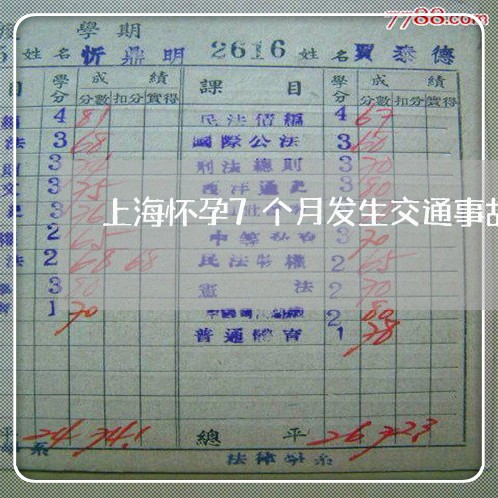 7788.com
學期
姓名 忻鼎明 2616 姓名 賈泰德
目 學分 成績 課目 學分 成績
分數 扣分 實得 分數 扣分 實得
4 81 民法債編 4 67
法 3 68 國際公法 3 60
3 刑法總則 3 70
3 75 西洋通史 3 80
3
上海怀孕7个月发生交通事故
2 65 中等 3 70
法 2 68 68 民法物權 2 65
3 80 憲法 2 70
1 70 2 80
普通體育 1 78
平 24 74.1 總平 26 72.3
系 法律學系